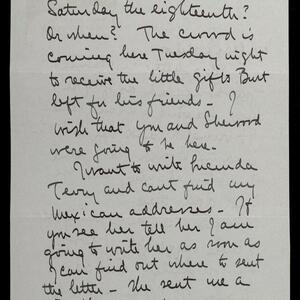 Saturday the eighteenth?
Or when? The crowd is
coming here Tuesday night
to receive the little gifts Burt
left for his friends - I
wish that you and Sherwood
were going to be here.
I want to write Lucinda
Terry and can't find my
Mexican addresses - If
you see her tell her I am
going to write her as soon as
I can find out where to send
the letter - She sent me a